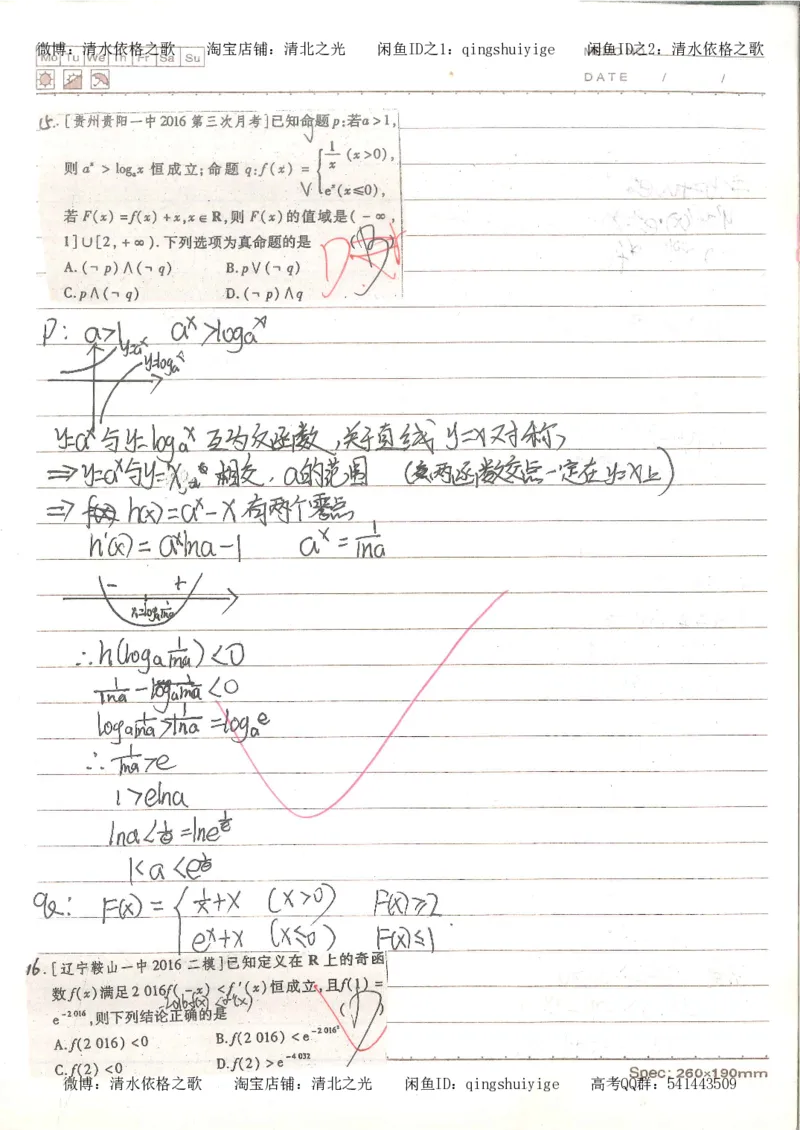 微博：清水依格之歌 淘宝店铺：清北之光 闲鱼ID之1：qingshuiyige 闲鱼ID之2：清水依格之歌
Mo Tu We Th Fr Sa Su
DATE / /
15.［贵州贵阳一中2016第三次月考］已知命题p:若a>1,
则aˣ > logₐx 恒成立;命题 q:f(x) = { 1/x (x>0),
eˣ(x≤0),
若 F(x) =f(x) +x,x∈R,则 F(x)的值域是( - ∞ ,
1]∪[2, + ∞ ). 下列选项为真命题的是
A.(¬ p)∧(¬ q) B.p∨(¬ q)
C.p∧(¬ q) D.(¬ p)∧q
p: a>1 aˣ>logₐx
y=aˣ
y=logₐx
y=aˣ与y=logₐx 互为反函数,关于直线 y=x对称,
⇒y=aˣ与y=x 相交,a的范围 (两函数交点一定在y=x上)
⇒ h(x)=aˣ-x 有两个零点
h'(x)=aˣlna-1 aˣ=1/lna
- +
x=logₐ1/lna
∴h(logₐ1/lna)<0
1/lna-logₐ1/lna<0
logₐ1/lna>1/lna=logₐe
∴1/lna>e
1>elna
lna<1/e=lne^(1/e)
1<a<e^(1/e)
q: F(x)={ 1/x+x (x>0) F(x)≥2
eˣ+x (x≤0) F(x)≤1
16.［辽宁鞍山一中2016二模］已知定义在 R 上的奇函
数f(x)满足2 016f( -x) <f '(x)恒成立,且f(1) =
-2016f(x)<f'(x)
e⁻²⁰¹⁶,则下列结论正确的是 (D)
A.f(2 016) <0 B.f(2 016) < e^(-2 016²)
C.f(2) <0 D.f(2) > e⁻⁴ ⁰³²
Spec: 260×190mm
微博：清水依格之歌 淘宝店铺：清北之光 闲鱼ID：qingshuiyige 高考QQ群：541443509